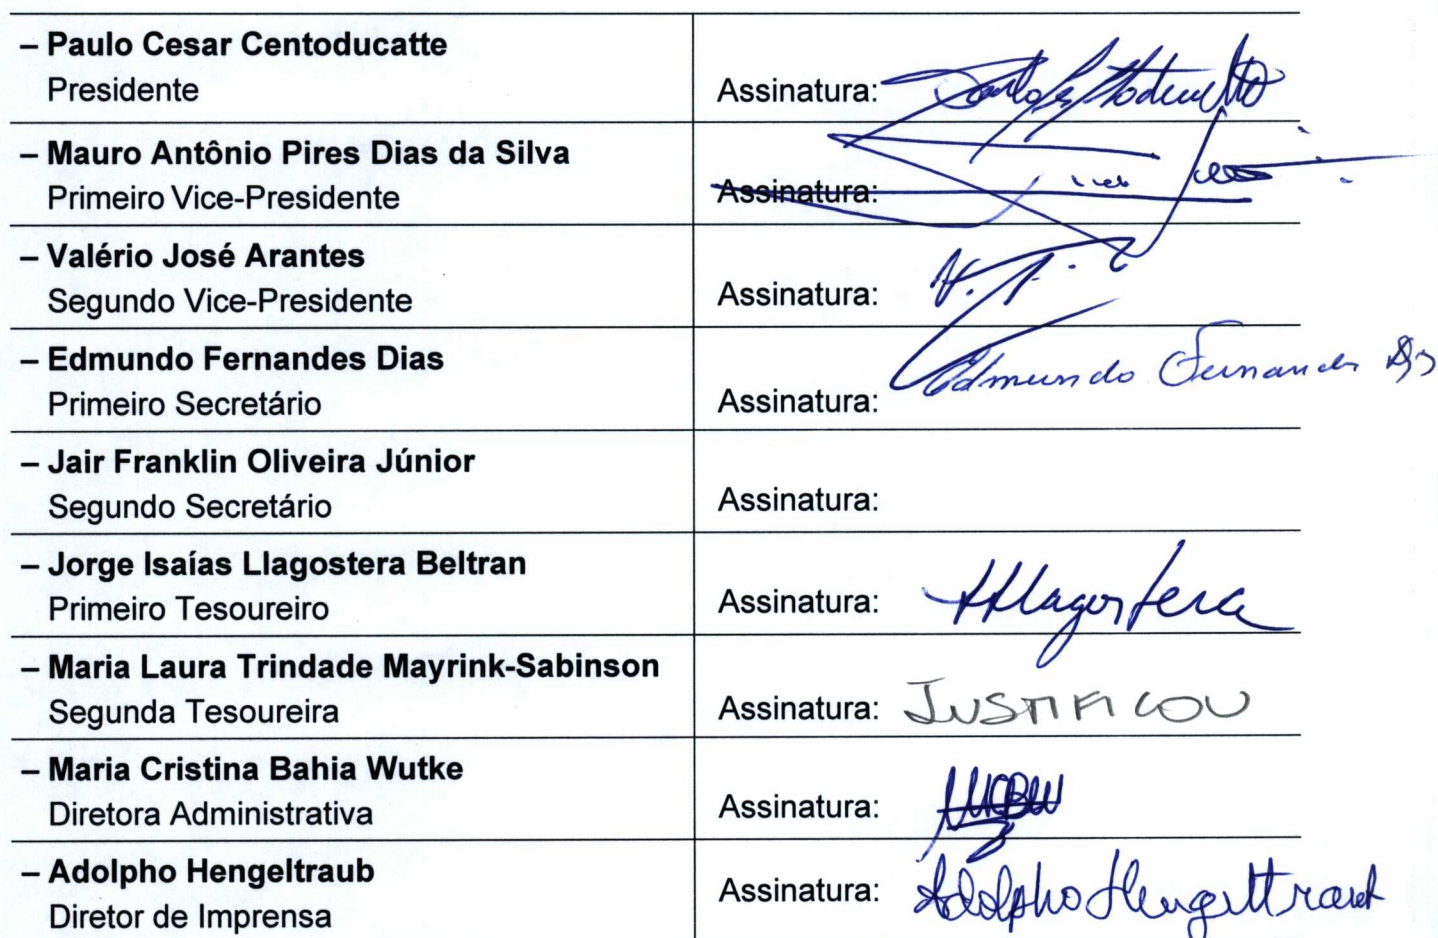 – Paulo Cesar Centoducatte
Presidente
Assinatura:
– Mauro Antônio Pires Dias da Silva
Primeiro Vice-Presidente
Assinatura:
– Valério José Arantes
Segundo Vice-Presidente
Assinatura:
– Edmundo Fernandes Dias
Primeiro Secretário
Assinatura: Edmundo Fernandes Dias
– Jair Franklin Oliveira Júnior
Segundo Secretário
Assinatura:
– Jorge Isaías Llagostera Beltran
Primeiro Tesoureiro
Assinatura: Llagostera
– Maria Laura Trindade Mayrink-Sabinson
Segunda Tesoureira
Assinatura: JUSTIFICOU
– Maria Cristina Bahia Wutke
Diretora Administrativa
Assinatura: MCBW
– Adolpho Hengeltraub
Diretor de Imprensa
Assinatura: Adolpho Hengeltraub